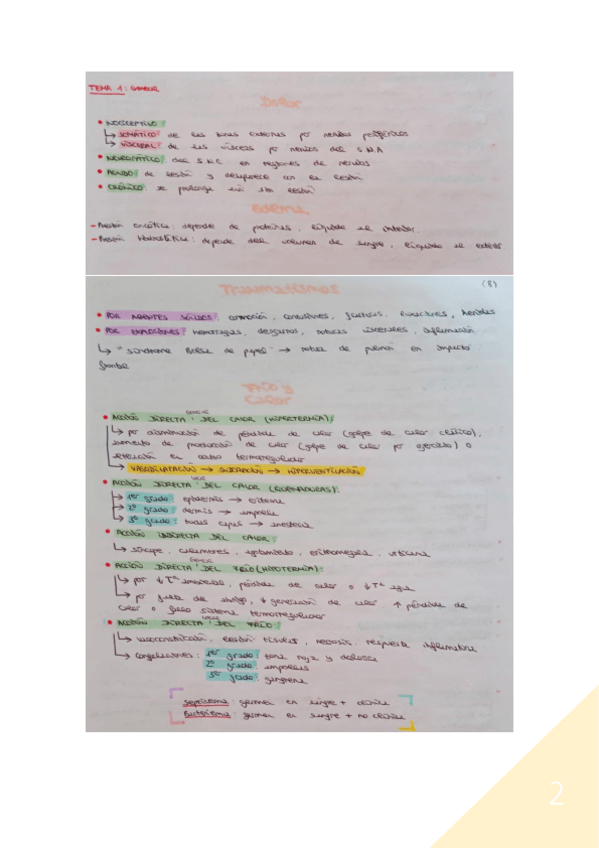 TEMA 1: 
Dolor
• NOCICEPTIVO:
↳ SOMÁTICO: de las zonas externas por nervios periféricos
↳ VISCERAL: de las vísceras por nervios del S.N.A
• NEUROPÁTICO: del S.N.C en regiones de nervios
• AGUDO: de lesión y desaparece con la lesión
• CRÓNICO: se prolonga sin lesión
Edema
- Presión oncótica: depende de proteínas, líquido al interior.
- Presión hidrostática: depende del volumen de sangre, líquido al exterior
(8)
Traumatismos
• POR AGENTES SÓLIDOS: conmoción, contusiones, fracturas, luxaciones, heridas
• POR EXPLOSIONES: hemorragias, desgarros, roturas viscerales, inflamación
↳ "síndrome Bolsa de papel" → rotura de pulmón en impacto
frontal
FRÍO Y
CALOR
• ACCIÓN DIRECTA DEL CALOR (HIPERTERMIA):
↳ por disminución de pérdida de calor (golpe de calor clásico),
aumento de producción de calor (golpe de calor por ejercicio) o
alteración en centro termorregulador
↳ VASODILATACIÓN → SUDORACIÓN → HIPERVENTILACIÓN
• ACCIÓN DIRECTA LOCAL DEL CALOR (QUEMADURAS):
→ 1er grado: epidermis → eritema
→ 2º grado: dermis → ampolla
→ 3er grado: todas capas → anestesia
• ACCIÓN INDIRECTA DEL CALOR:
↳ síncope, calambres, agotamiento, urticaria
• ACCIÓN DIRECTA GENERAL DEL FRÍO (HIPOTERMIA):
↳ por ↓ Tª ambiental, pérdida de calor o ↓ Tª agua
↳ por falta de abrigo, ↓ generación de calor ↑ pérdida de
calor o fallo sistema termorregulador
• ACCIÓN DIRECTA LOCAL DEL FRÍO:
↳ vasoconstricción, lesión tisular, necrosis, respuesta inflamatoria
↳ Congelaciones: 1er grado: zona roja y dolorosa
2º grado: ampollas
3er grado: gangrena
Septicemia: germen en sangre + clínica
Bacteriemia: germen en sangre + no clínica
2